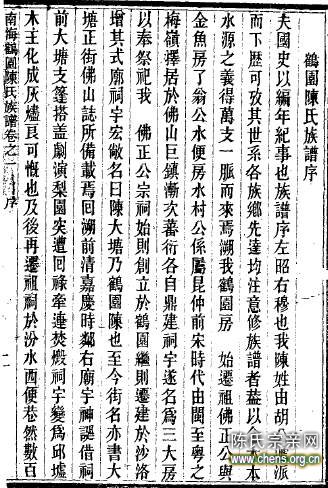 鶴園陳氏族譜序
夫國史以編年紀事也族譜序左昭右穆也我陳姓由胡公滿派
而下歷可攷其世系各族鄉先達均注意修族譜者蓋以念木本
水源之義得萬支一脈而來焉溯我鶴園房 始遷祖佛正公與
金魚房了翁公水便房水村公係屬昆仲前宋時代由閩至粵之
梅嶺擇居於佛山巨鎮漸次蕃衍各自鼎建祠宇遂名爲三大房
以奉祭祀我 佛正公宗祠始則創立於鶴園繼則遷建於沙洛
增其式廓祠宇宏敞名曰陳大塘乃鶴園陳也至今街名亦書大
塘正街佛山誌所備載焉回溯前清嘉慶時鄰右廟宇神誕借祠
前大塘支篷搭蓋劇演梨園突遭回祿牽連焚燬祠宇變爲邱墟
木主化成灰燼良可慨也及後再遷祖祠於汾水西便巷然數百
南海鶴園陳氏族譜卷之一 序
一
陈氏宗亲网
www.chens.org.cn